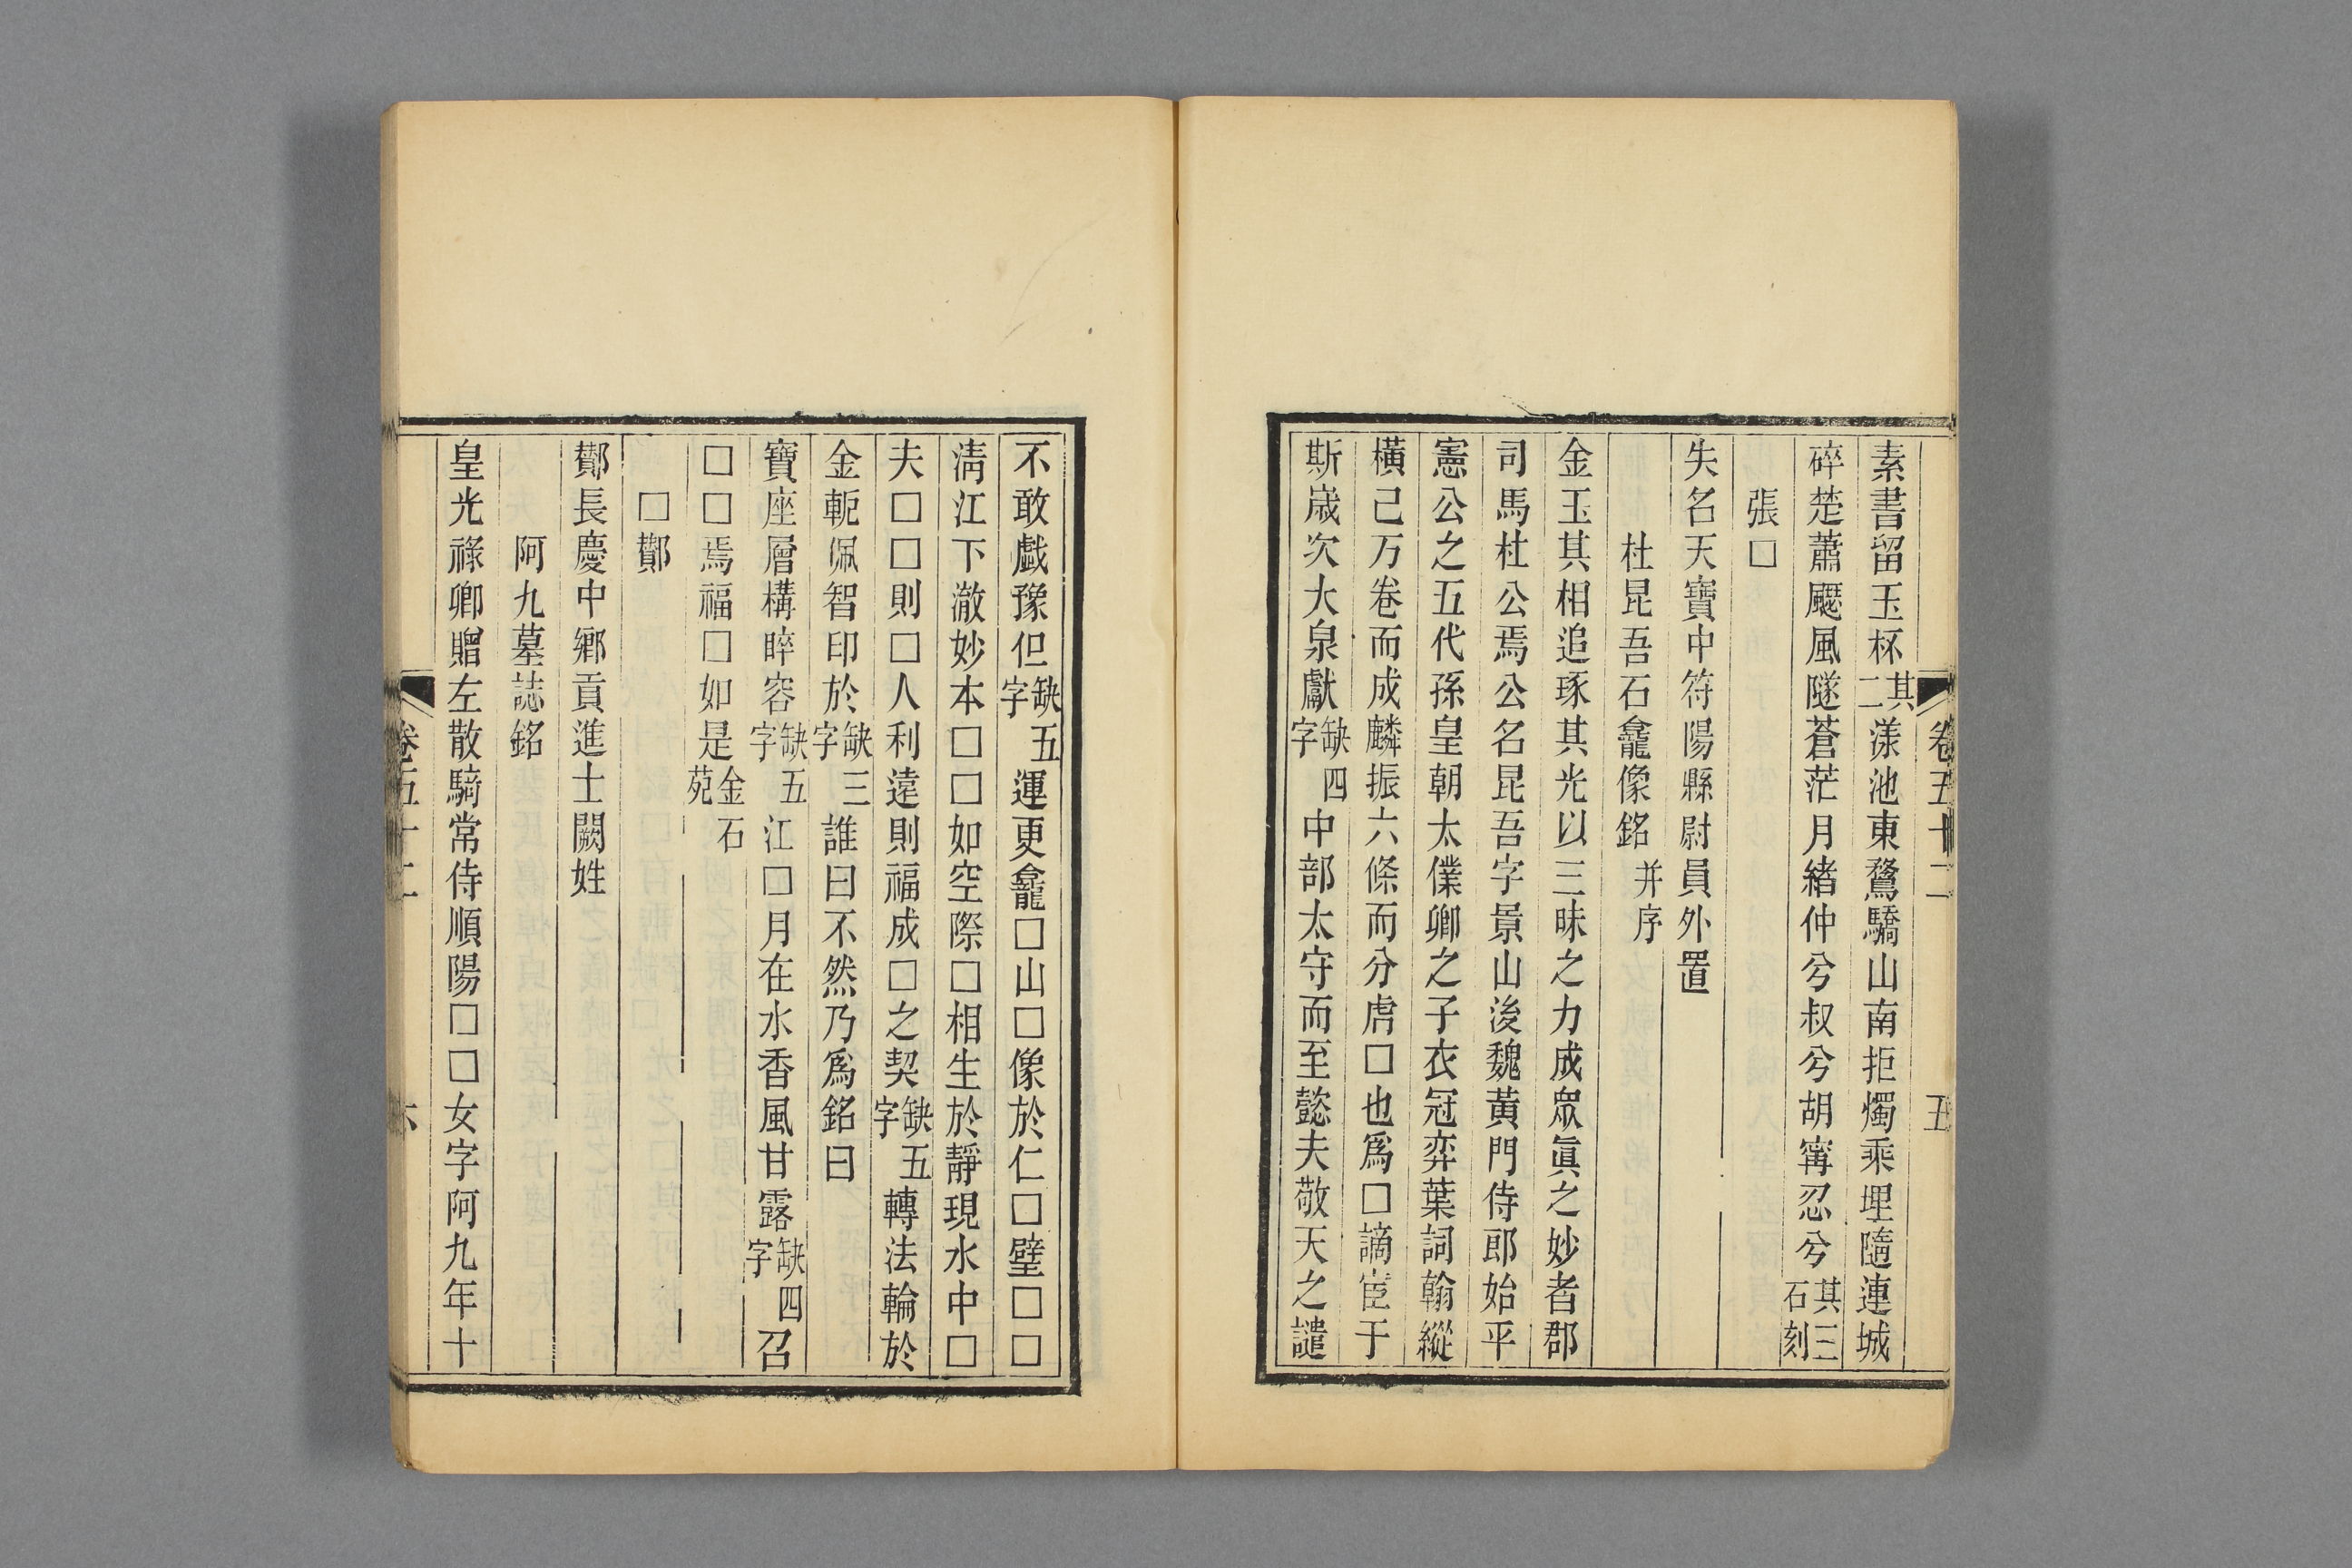 卷五十二 五
素書留玉杯其二漾池東鶩驕山南拒燭乘埋隨連城
碎楚蕭飋風隧蒼茫月緒仲兮叔兮胡寗忍兮其三石刻
張□
失名天寶中符陽縣尉員外置
杜昆吾石龕像銘并序
金玉其相追琢其光以三昧之力成眾眞之妙者郡
司馬杜公焉公名昆吾字景山後魏黃門侍郎始平
憲公之五代孫皇朝太僕卿之子衣冠弈葉詞翰縱
橫已万卷而成麟振六條而分虎□也爲□謫宦于
斯歲次大泉獻缺四字中部太守而至懿夫敬天之譴
不敢戲豫但缺五字運更龕□山□像於仁□壁□□
淸江下澈妙本□□如空際□相生於靜現水中□
夫□□則□人利遠則福成□之契缺五字轉法輪於
金軛佩智印於缺三字誰曰不然乃爲銘曰
寶座層構睟容缺五字江□月在水香風甘露缺四字召
□□焉福□如是金石苑
□酇
酇長慶中鄉貢進士闕姓
阿九墓誌銘
皇光祿卿贈左散騎常侍順陽□□女字阿九年十
卷五十二 六